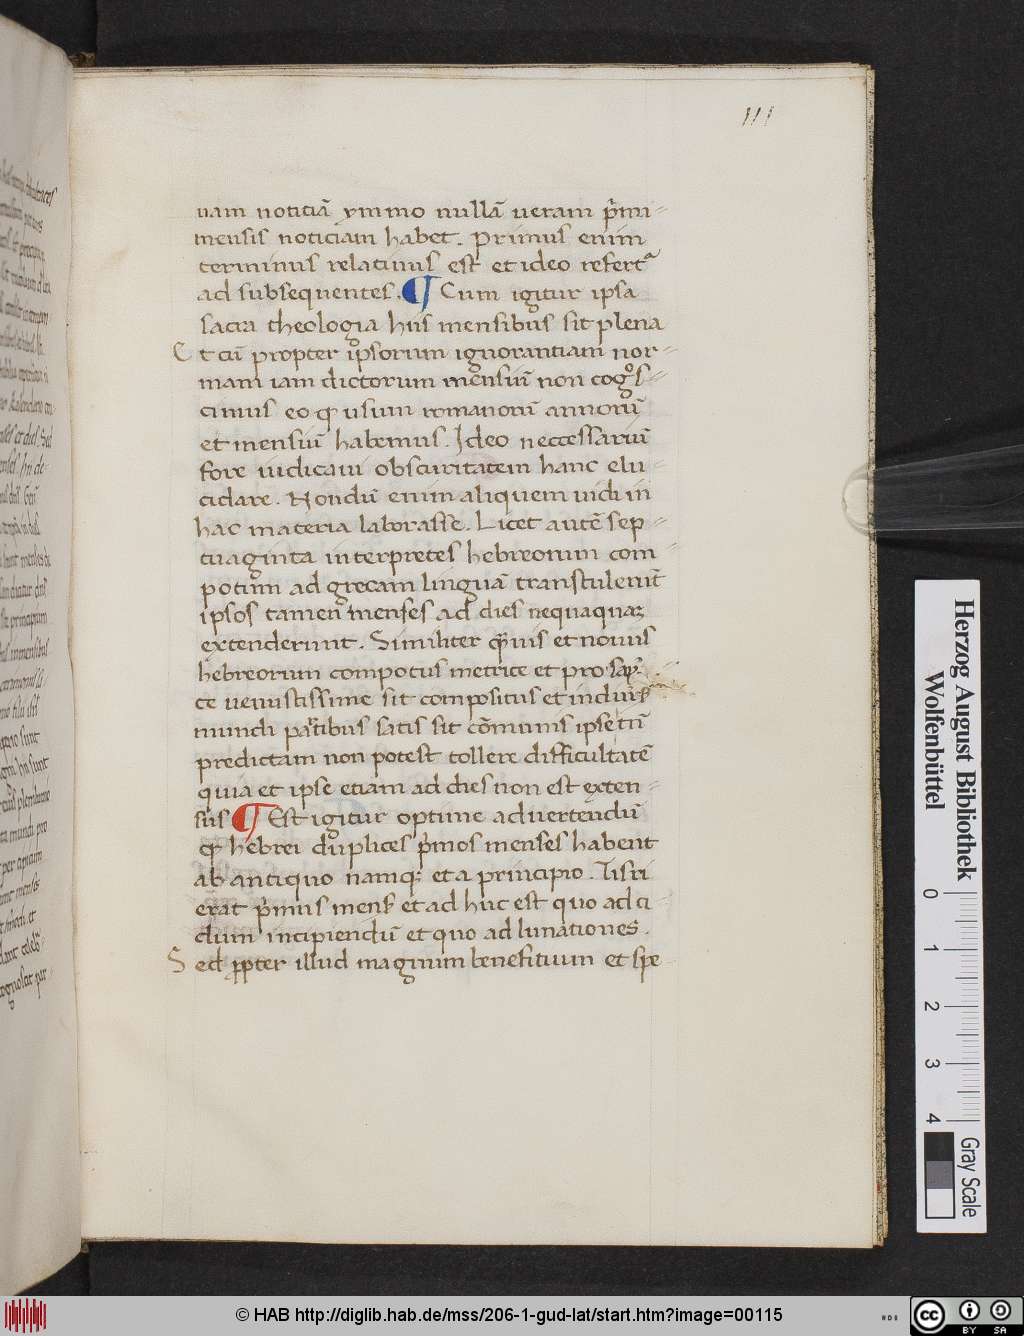 111
uam noticiā ymmo nullā ueram p̄mi
mensis noticiam habet. Primus enim
terminus relatiuus est et ideo refert᷑
ad subsequentes. ¶ Cum igitur ipsa
sacra theologia hiis mensibus sit plena
Et cū propter ipsorum ignorantiam nor-
mam iam dictorum mensiū non cogͦs-
cimus eo ꝙ usum romanorū annorū
et mensiū habemus. Ideo neccessariū
fore iudicaui obscuritatem hanc elu-
cidare. Nondū enim aliquem uidi in
hac materia laborasse. Licet autē sep-
tuaginta interpretes hebreorum com-
potum ad grecam linguā transtulerūt
ipsos tamen menses ad dies nequaquaꝫ
extenderunt. Similiter ꝙuis et nouus
hebreorum compotus metrice et pro
te uenustissime sit compositus et
mundi ꝑtibus satis sit cōmunis ipse tn̄
predictam non potest tollere difficultatē
quia et ipse etiam ad dies non est exten-
sus ¶ Est igitur optime aduertendū
ꝙ hebrei duplices p̄mos menses habent
ab antiquo namqꝫ et a principio. Tisri
erat p̄mus mens̄ et ad huc est quo ad ci-
clum incipiendū et quo ad lunationes.
Sed ꝓpter illud magnum benefitium et spe
Herzog August Bibliothek
Wolfenbüttel
0 1 2 3 4
Gray Scale
© HAB http://diglib.hab.de/mss/206-1-gud-lat/start.htm?image=00115
cc BY SA